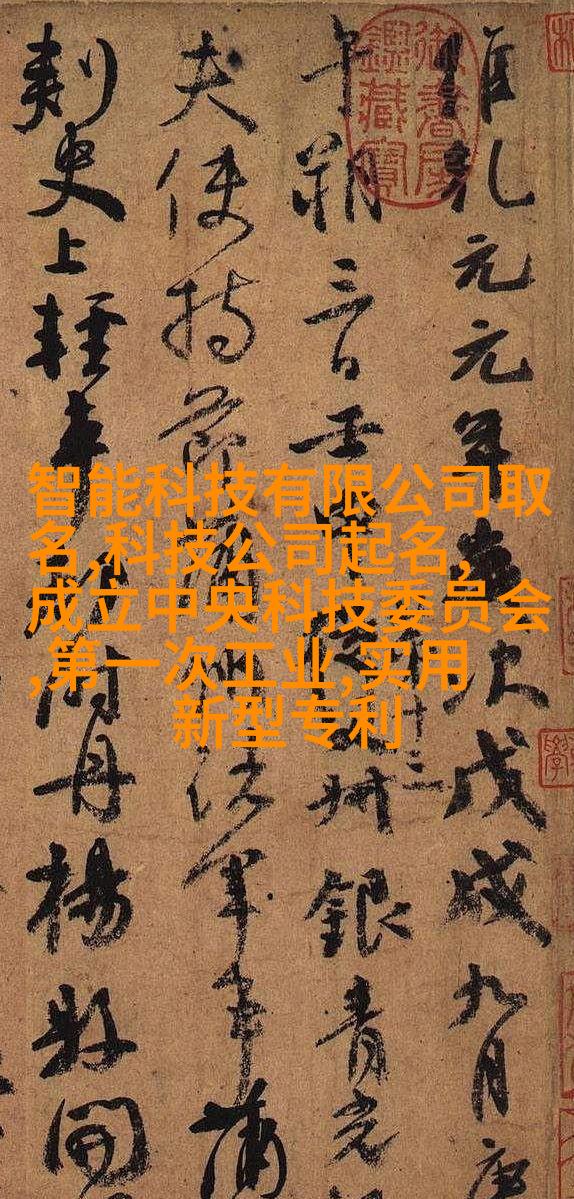 智能科技有限公司取
名,科技公司起名,
成立中央科技委员会
,第一次工业,实用
新型专利
維乾元元年歲次戊戌九月庚
午朔三日壬
十三
州銀青光
夫使持節蒲州諸軍事蒲
刺史上輕車都尉丹楊縣開
御書房鑑藏寶